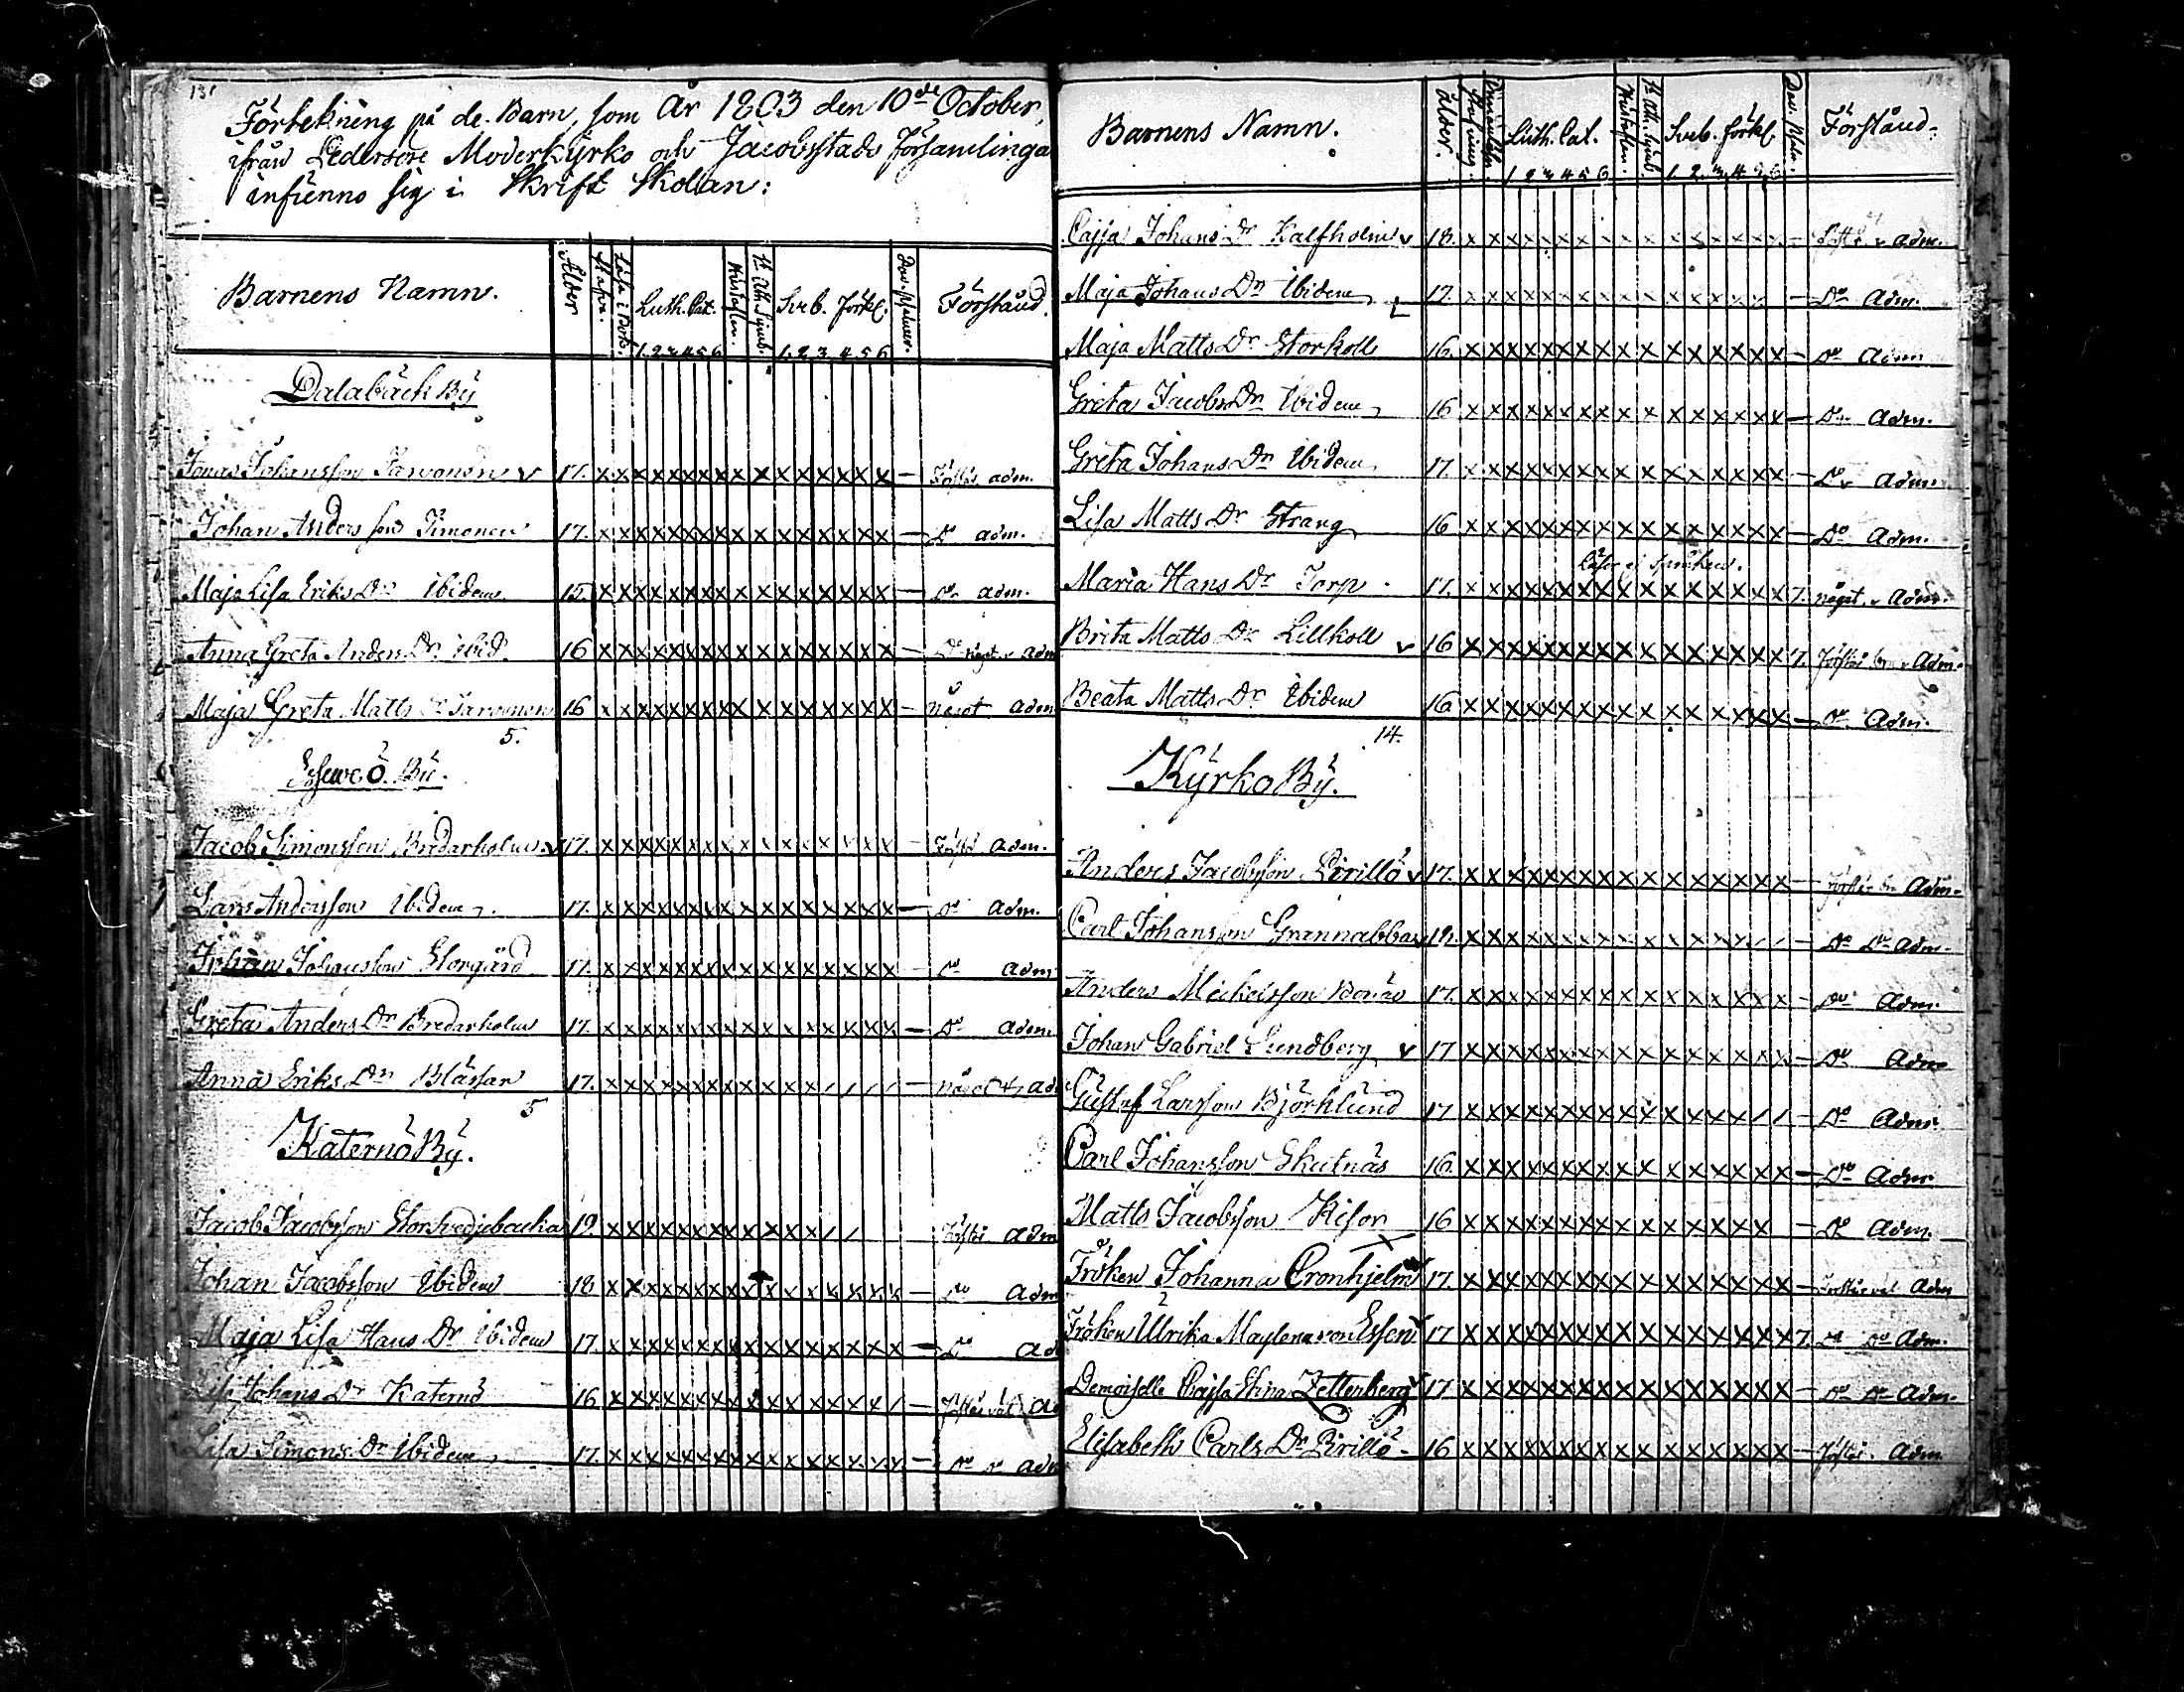 Förtekning på de Barn, som År 1803 den 10de October,
ifrån Pedersöre Moderkyrko och Jacobsstads Församlingar
infunno sig i Skrift Skolan:
Barnens Namn. Ålder Luth. Cat. Hustaflan. St. Ath. Symb. Sveb. förkl. Dav. Psalmer. Förstånd.
1 2 3 4 5 6 1 2 3 4 5 6
Dalabäck By
Jonas Johansson v 17. x x x x x x x x x x x x x x x x — Förstår adm.
Johan Andersson Timonen 17. x x x x x x x x x x x x x x x x — Do adm.
Maja Lisa Eriks Dr Ibidem 15. x x x x x x x x x x x x x x x x — Do adm.
Anna Greta Anders Dr ibid. 16 x x x x x x x x x x x x x x x x — Do något v adm
Maja Greta Matts Dr 16 x x x x x x x x x x x x x x x x — något adm
5.
By.
Jacob Simonsson Bredarholm v 17. x x x x x x x x x x x x x x x x — Förstår adm.
Lars Andersson Ibidem 17. x x x x x x x x x x x x x x x x — Do adm.
Johan Johansson Storgård 17. x x x x x x x x x x x x x x x x — Do adm
Greta Anders Dr Bredarholm 17. x x x x x x x x x x x x x x x x — Do adm
Anna Eriks Dr Blässar 17. x x x x x x x x x x x x / / / / — något
5
Katernö By.
Jacob Jacobsson Storsvedjebacka 19. x x x x x x x x x x x x / / Förstår adm
Johan Jacobsson Ibidem 18 x x x x x x x x x x x x x x x x — Do adm
Maja Lisa Hans Dr Ibidem 17. x x x x x x x x x x x x x x x x — Do ad
Lisa Johans Dr Katernö 16 x x x x x x x x x x x x x x x / — Förstår väl ad
Lisa Simons Dr Ibidem 17. x x x x x x x x x x x x x x x x — Do Do adm
Barnens Namn. Ålder. Luth. Cat. Hustaflan. St. Ath. Symb. Sveb. förkl. Dav. Psalm. Förstånd.
1 2 3 4 5 6 1. 2. 3. 4. 5. 6.
Cajsa Johans Dr Kalfholm v 18. x x x x x x x x x x x x x x x x — Förstår v adm.
Maja Johans Dr Ibidem 17. x x x x x x x x x x x x x x x x — Do adm.
Maja Matts Dr Storkoll 16. x x x x x x x x x x x x x x x x — Do adm
Greta Jacobs Dr Ibidem 16 x x x x x x x x x x x x x x x x — Do adm.
Greta Johans Dr Ibidem 17. x x x x x x x x x x x x x x x x — Do adm
Lisa Matts Dr Strang 16 x x x x x x x x x x x x x x x x — Do adm.
Läser ej språken.
Maria Hans Dr Torp 17. x x x x x x x x x x x x x x x x 7. något v adm.
Brita Matts Dr Lillkoll v 16 x x x x x x x x x x x x x x x x 7. Förstår adm.
Beata Matts Dr Ibidem 16 x x x x x x x x x x x x x x x x — Do adm.
14.
Kyrko By.
Anders Jacobsson Pirilö v 17. x x x x x x x x x x x x x x x x — Förstår adm.
Carl Johansson Grannabba v x x x x x x x x x x x x x x / / — Do Do adm.
Anders Mickelsson Bonäs 17. x x x x x x x x x x x x x x x x — Do adm
Johan Gabriel Sundberg v 17 x x x x x x x x x x x x x x x x — Do adm
Gustaf Larsson Björklund 17 x x x x x x x x x x x x x x / / — Do adm
Carl Johansson Skutnäs 16. x x x x x x x x x x x x x x x x — Do adm
Matts Jacobsson Kisor 16 x x x x x x x x x x x x x x x — Do adm.
Fröken Johanna Cronhjelm 17. x x x x x x x x x x x x x x x x — Förstår väl adm
Fröken Ulrika Maylena von Essen v 17 x x x x x x x x x x x x x x x x 7. Do Do adm.
Demoiselle Chajsa Stina Zetterberg v 17 x x x x x x x x x x x x x x x x — Do Do adm.
Elisabeth Carls Dr Pirilö 16 x x x x x x x x x x x x x x x x — Förstår adm